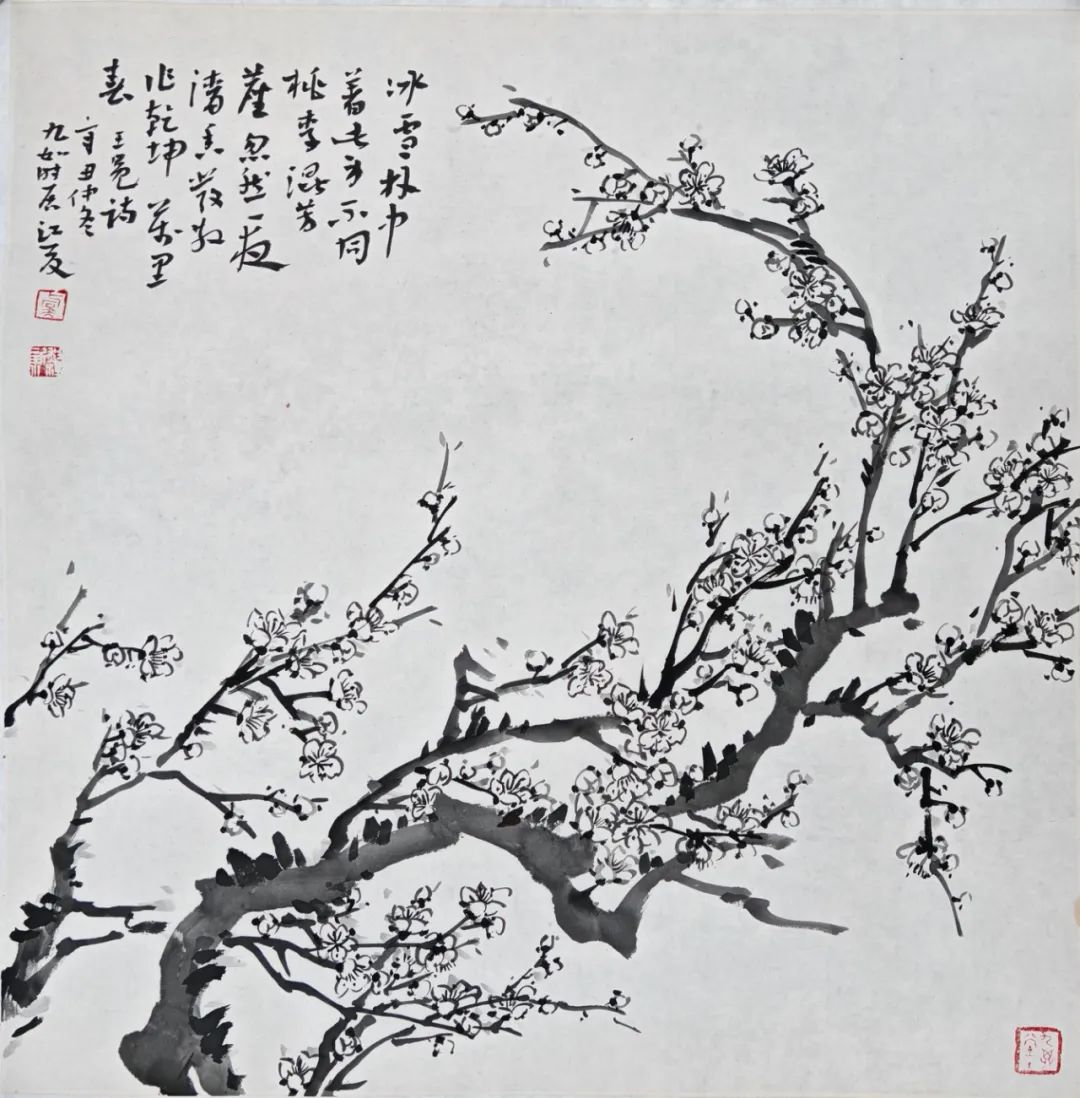 冰雪林中
著此身不同
桃李混芳
塵忽然一夜
清香發散
作乾坤萬里
春 王冕詩
辛丑仲冬
九如时居江夏